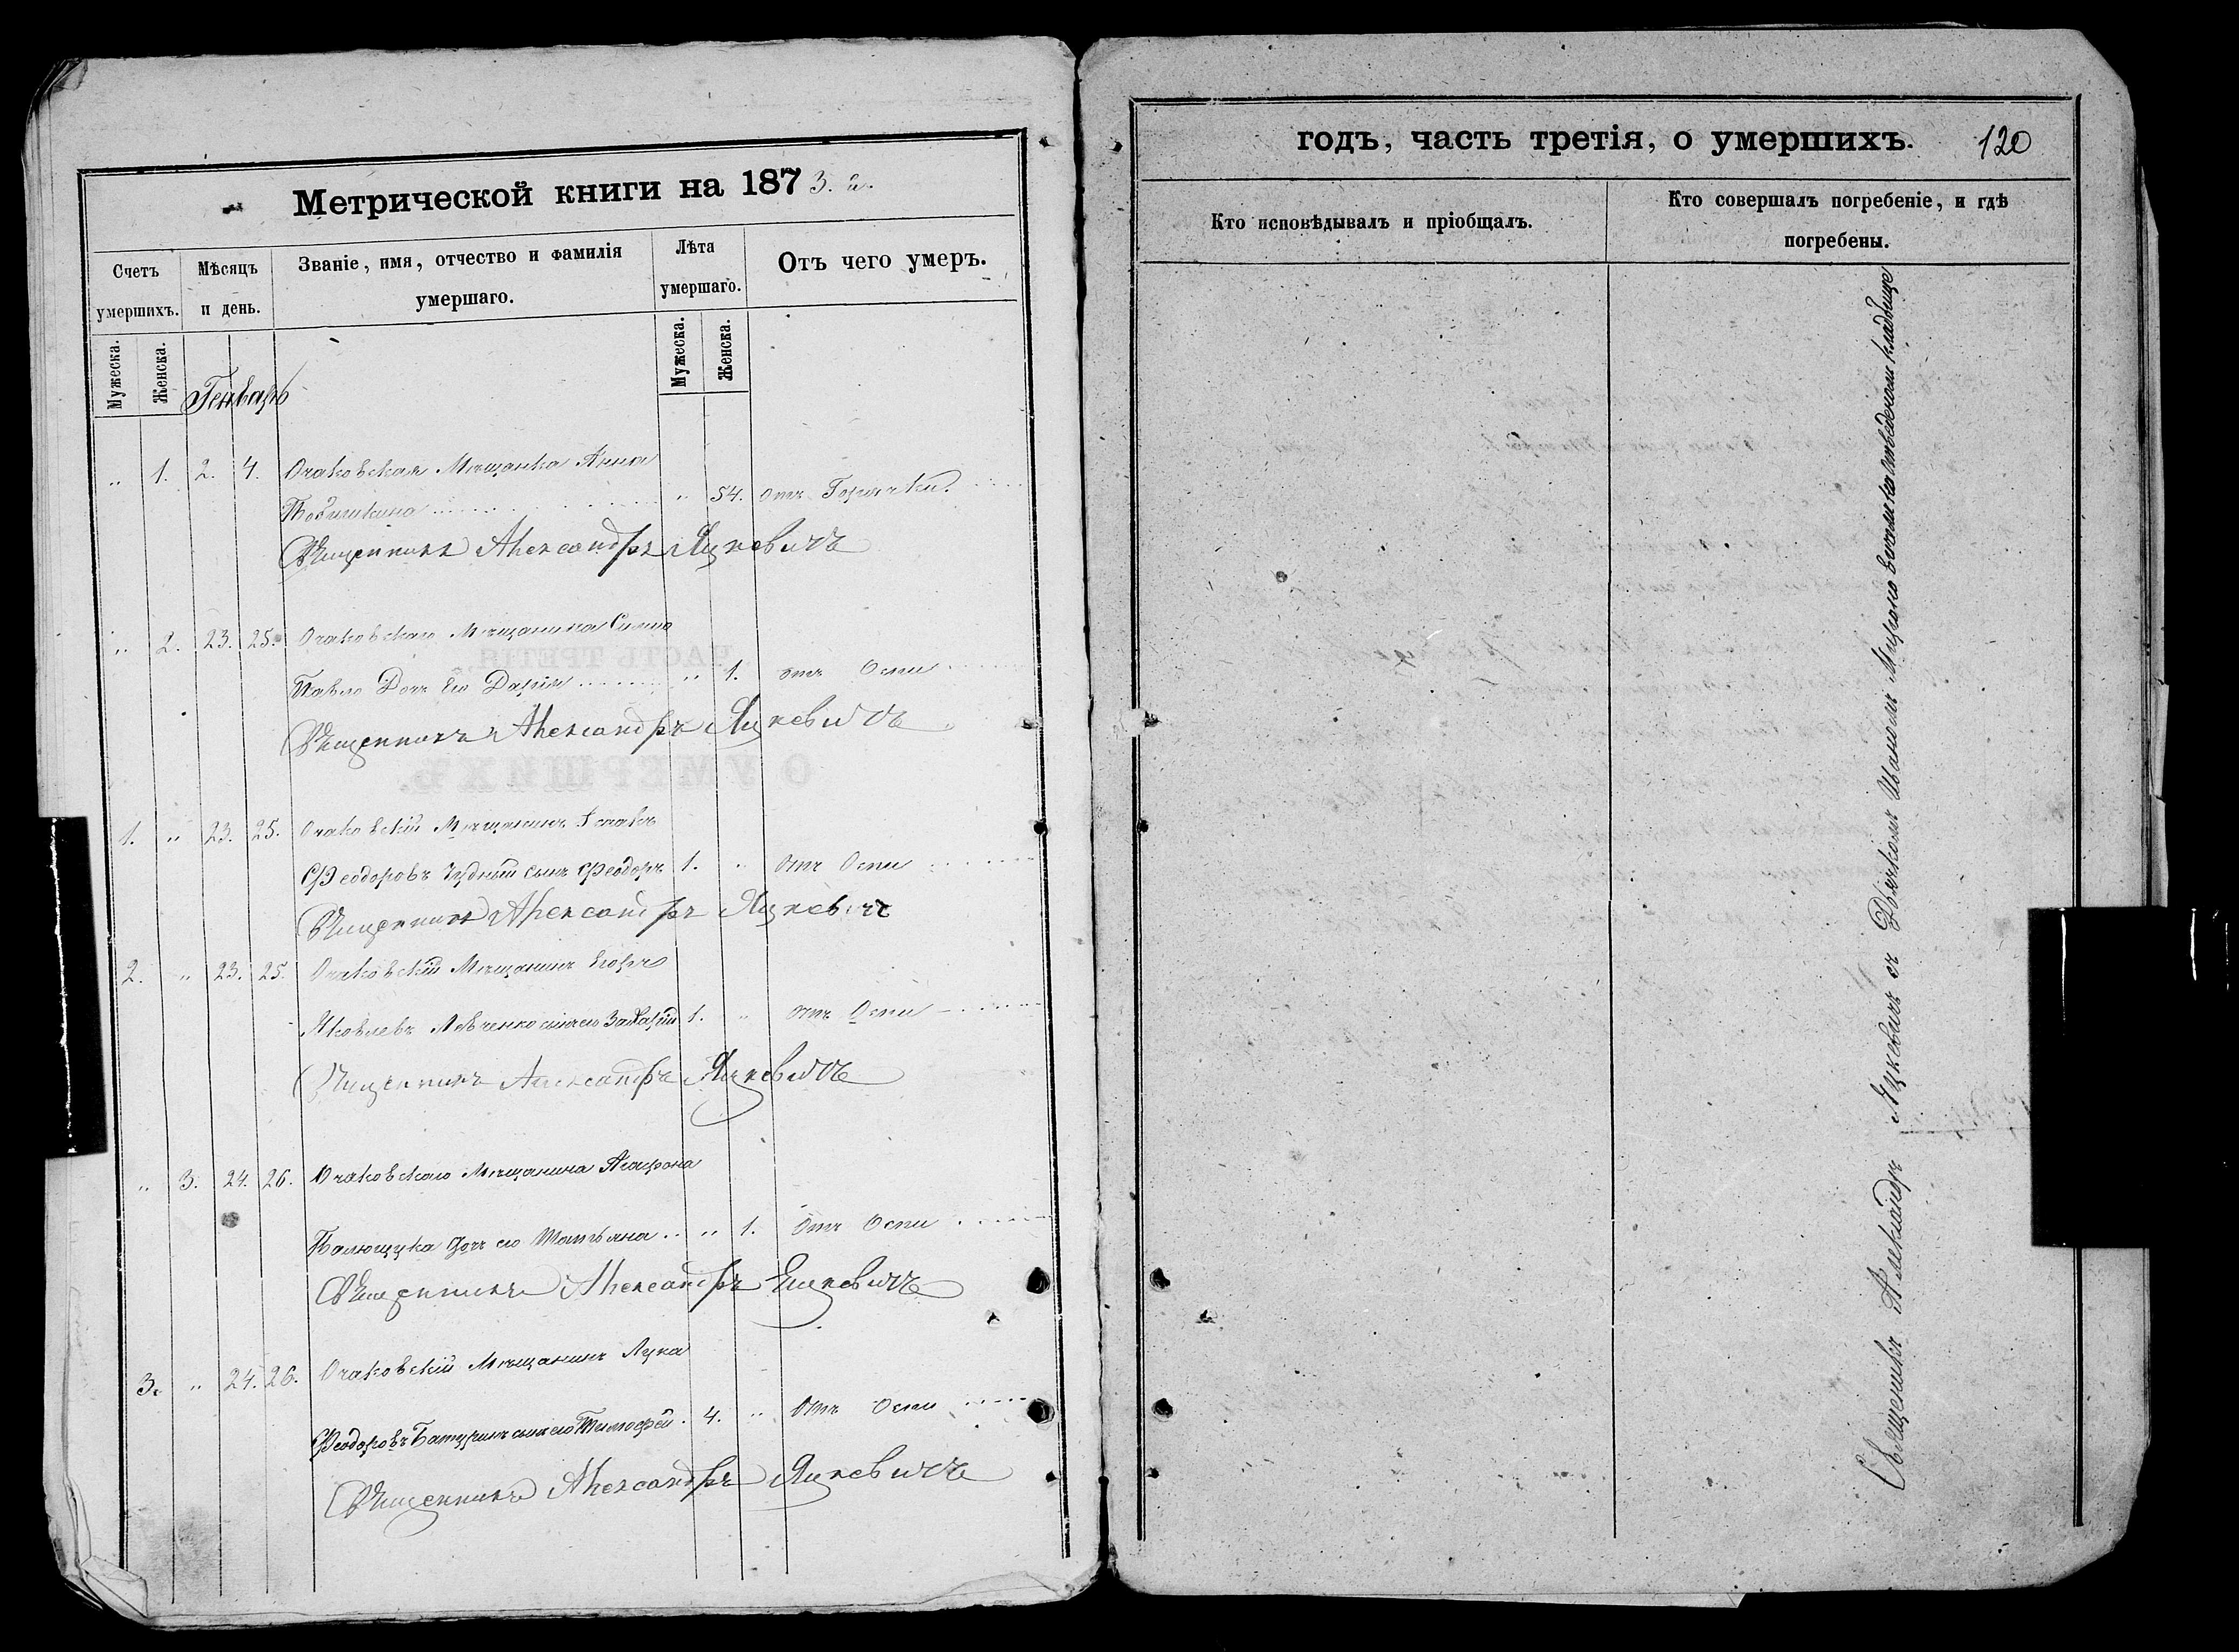 Метрической книги на 1873. г.
Счетъ умершихъ.
Мѣсяцъ и день.
Званіе, имя, отчество и фамилія умершаго.
Лѣта умершаго.
Отъ чего умеръ.
Мужеска.
Женска.
Мужеска.
Женска.
Генварь
" 1. 2. 4. Очаковская Мѣщанка Анна
" 54. отъ Горячки.
Священникъ Александръ Яцкевичъ
" 2. 23. 25. Очаковскаго Мѣщанина
Дочь Его Дарія " 1. отъ Оспи
Священникъ Александръ Яцкевичъ
1. " 23. 25. Очаковскій Мѣщанинъ
Феодоровъ Чудный сынъ Феодоръ 1. " отъ Оспи
Священникъ Александръ Яцкевичъ
2. " 23. 25. Очаковскій Мѣщанинъ Егоръ
Яковлевъ Левченко сынъ его Захарій 1. " отъ Оспи
Священникъ Александръ Яцкевичъ
" 3. 24. 26. Очаковскаго Мѣщанина Агафона
дочь его Татьяна " 1. Отъ Оспи
Священникъ Александръ Яцкевичъ
3. " 24. 26. Очаковскій Мѣщанинъ Лука
Феодоровъ Батуринъ сынъ его Тимофей. 4. " Отъ Оспи
Священникъ Александръ Яцкевичъ
годъ, часть третія, о умершихъ. 120
Кто исповѣдывалъ и пріобщалъ.
Кто совершалъ погребеніе, и гдѣ погребены.
Священникъ Александръ Яцкевичъ съ Дьячкомъ Иваномъ на отведеномъ кладбище